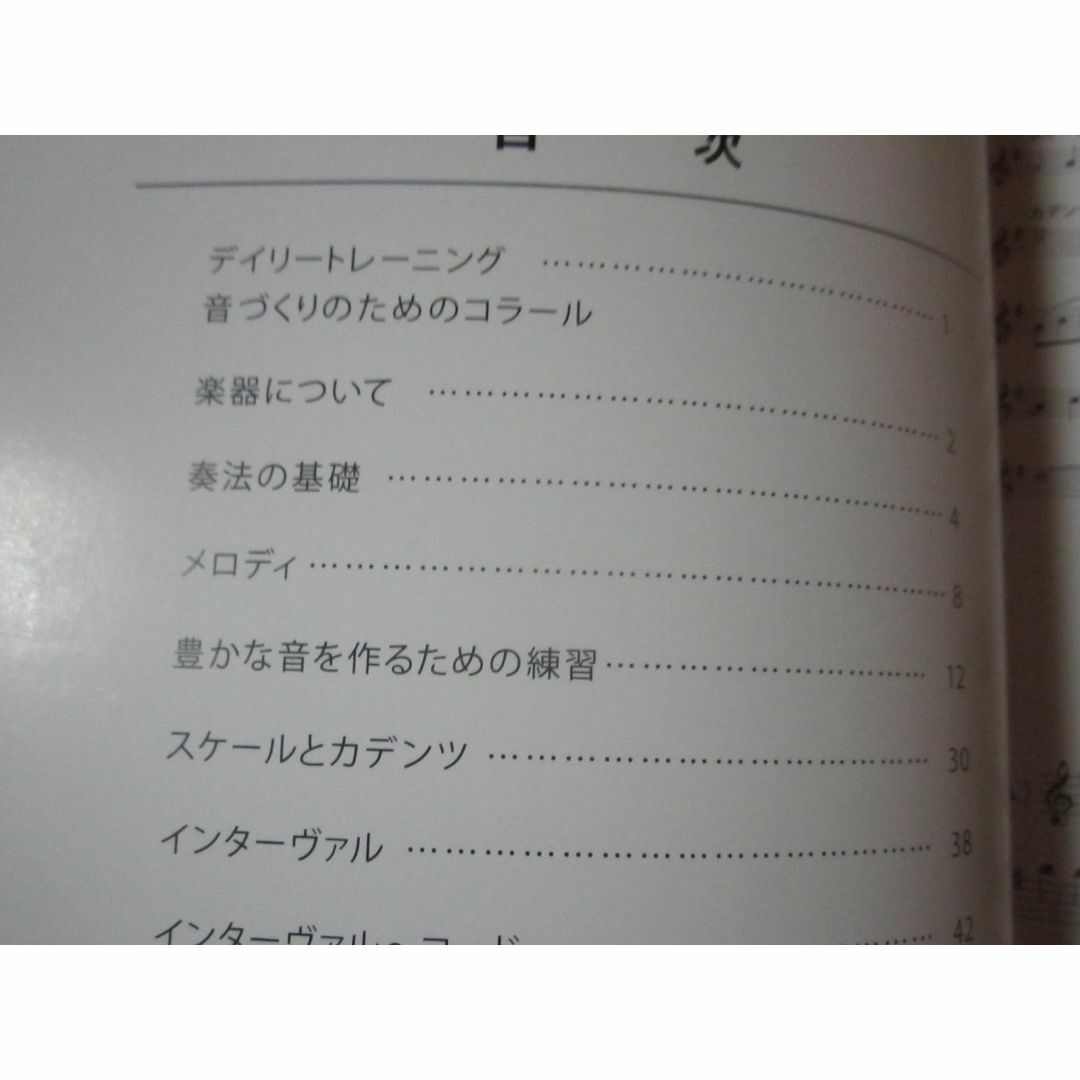 目 次
デイリートレーニング ……………………………… 1
音づくりのためのコラール
楽器について ……………………………………… 2
奏法の基礎 ………………………………………… 4
メロディ ……………………………………………… 8
豊かな音を作るための練習 ……………………… 12
スケールとカデンツ ……………………………… 30
インターヴァル …………………………………… 38
インターヴァル 42